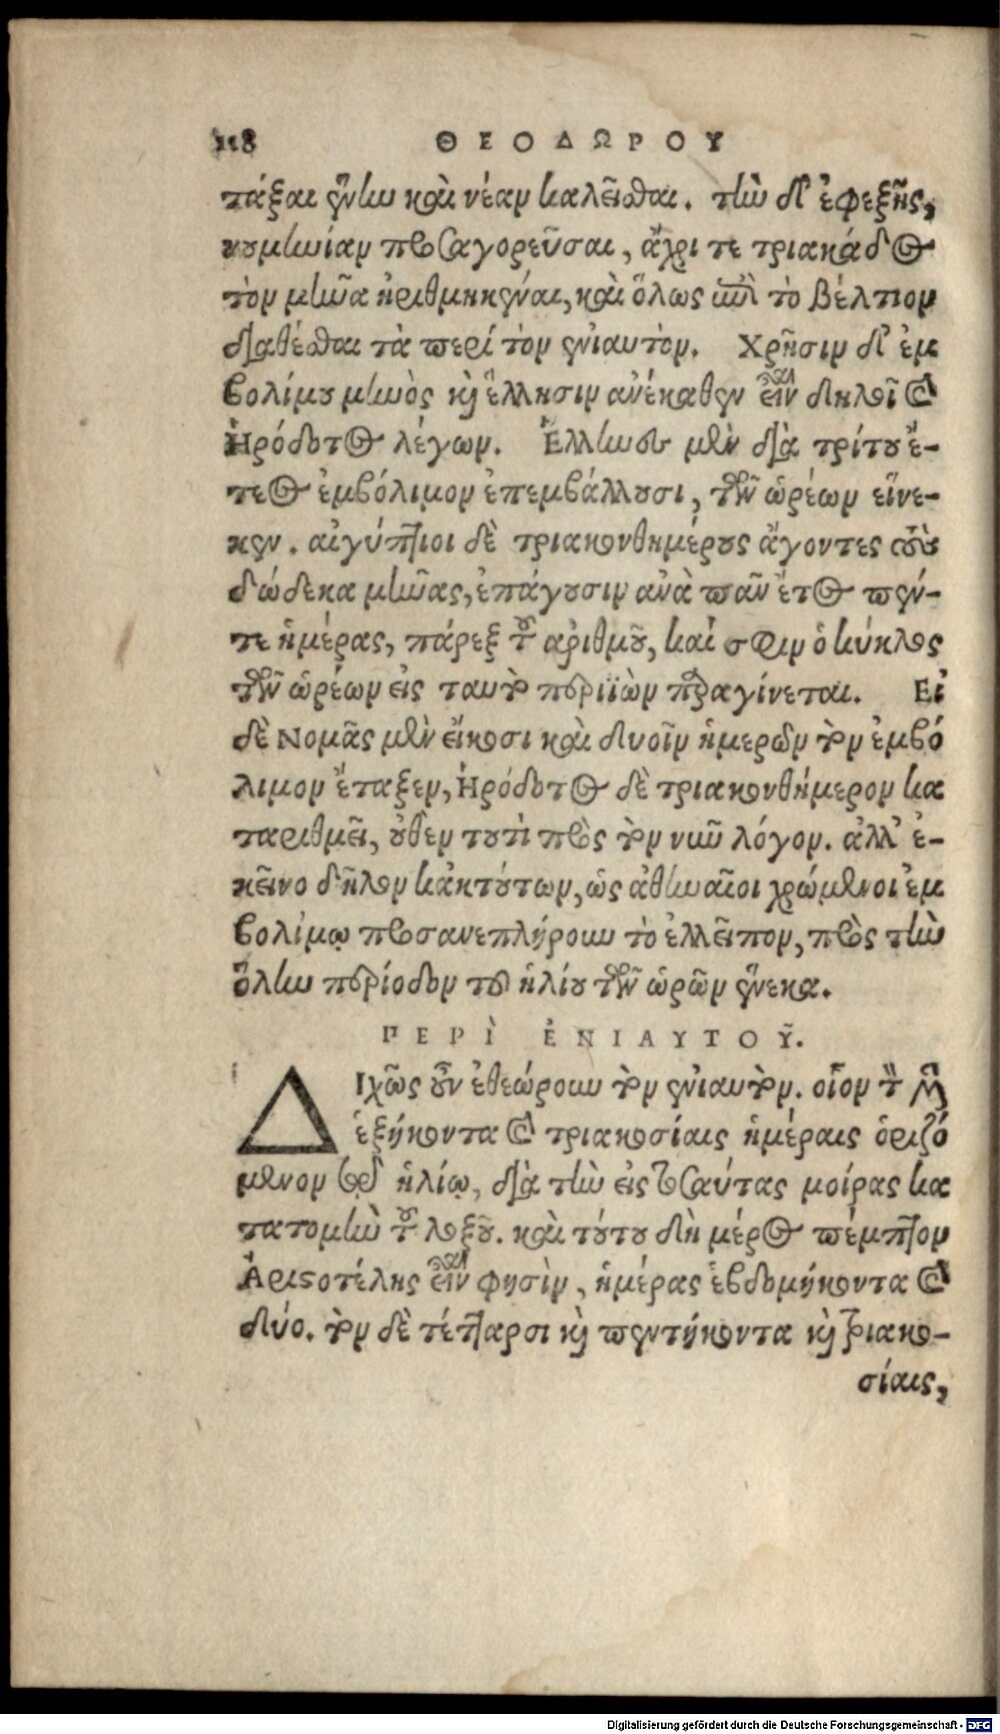 118 ΘΕΟΔΩΡΟΥ
τάξαι ἔνην καὶ νέαν καλεῖσθαι. τὴν δ' ἐφεξῆς,
νουμηνίαν προσαγορεῦσαι, ἄχρι τε τριακάδος
τὸν μῆνα ἠριθμηκέναι, καὶ ὅλως ἐπὶ τὸ βέλτιον
διαθέσθαι τὰ περὶ τὸν ἐνιαυτόν. Χρῆσιν δ' ἐμ
βολίμου μηνὸς καὶ ἕλλησιν ἀνέκαθεν εἶναι δηλοῖ καὶ
Ἡρόδοτος λέγων. Ἕλληνες μὲν διὰ τρίτου ἔ-
τεος ἐμβόλιμον ἐπεμβάλλουσι, τῶν ὡρέων εἵνε-
κεν. αἰγύπτιοι δὲ τριακονθημέρους ἄγοντες τοὺς
δώδεκα μῆνας, ἐπάγουσιν ἀνὰ πᾶν ἔτος πέν-
τε ἡμέρας, πάρεξ τοῦ ἀριθμοῦ, καί σφιν ὁ κύκλος
τῶν ὡρέων εἰς ταυτὸ περιϊὼν παραγίνεται. Εἰ
δὲ Νομᾶς μὲν εἴκοσι καὶ δυοῖν ἡμερῶν τὸν ἐμβό
λιμον ἔταξεν, Ἡρόδοτος δὲ τριακονθήμερον κα
ταριθμεῖ, οὐθὲν τουτὶ πρὸς τὸν νῦν λόγον. ἀλλ' ἐ-
κεῖνο δῆλον κἀκ τούτων, ὡς ἀθηναῖοι χρώμενοι ἐμ
βολίμῳ προσανεπλήρουν τὸ ἐλλεῖπον, πρὸς τὴν
ὅλην περίοδον τοῦ ἡλίου τῶν ὡρῶν ἕνεκα.
ΠΕΡῚ ἘΝΙΑΥΤΟΥ͂.
ΔΙχῶς οὖν ἐθεώρουν τὸν ἐνιαυτόν. οἷον τὸν μὲν
ἑξήκοντα καὶ τριακοσίαις ἡμέραις ὁριζό
μενον τῷ ἡλίῳ, διὰ τὴν εἰς τοσαύτας μοίρας κα
τατομὴν τοῦ λοξοῦ. καὶ τούτου δὴ μέρος πέμπτον
Ἀριστοτέλης εἶναι φησὶν, ἡμέρας ἑβδομήκοντα καὶ
δύο. τὸν δὲ τέτταρσι καὶ πεντήκοντα καὶ τριακο-
σίαις,
Digitalisierung gefördert durch die Deutsche Forschungsgemeinschaft - DFG